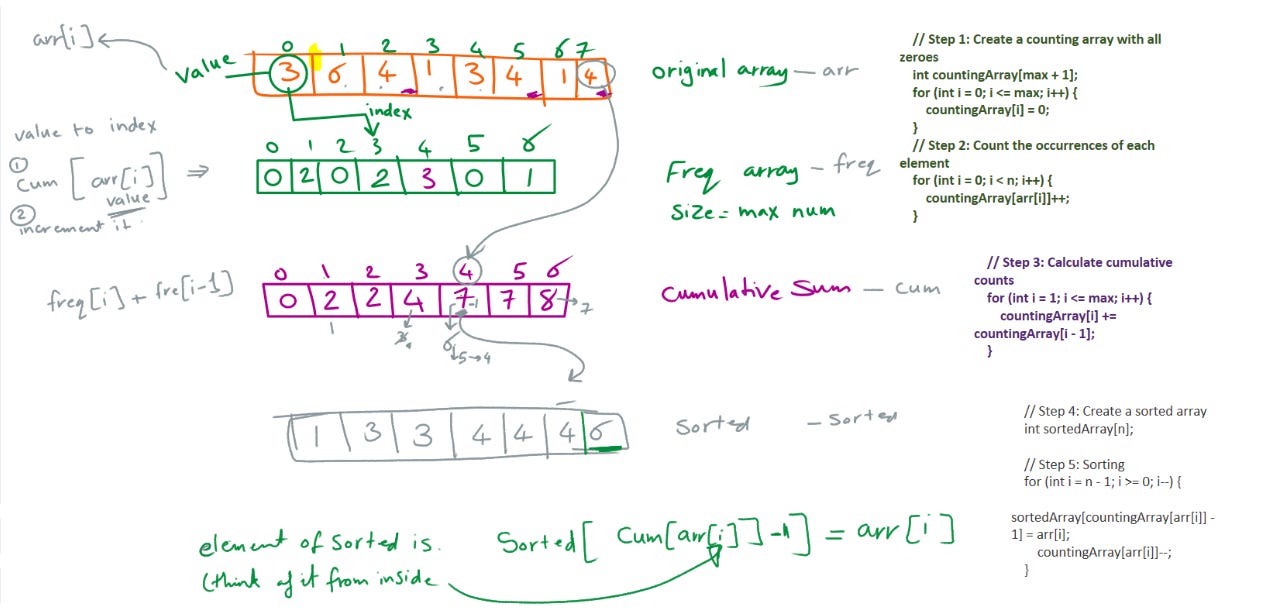 arr[i]
0 1 2 3 4 5 6 7
value
3 6 4 1 3 4 1 4
original array — arr
index
value to index
① Cum [arr[i]] ⇒
value
② increment it.
0 1 2 3 4 5 6
0 2 0 2 3 0 1
Freq array — freq
Size = max num
0 1 2 3 4 5 6
freq[i] + fre[i-1]
0 2 2 4 7 -1 7 8 → 7
1
6
↓5→4
Cumulative Sum — cum
1 3 3 4 4 4 6
Sorted — Sorted
element of sorted is.
(think of it from inside
Sorted[ Cum[arr[i]] -1] = arr[i]
// Step 1: Create a counting array with all
zeroes
int countingArray[max + 1];
for (int i = 0; i <= max; i++) {
countingArray[i] = 0;
}
// Step 2: Count the occurrences of each
element
for (int i = 0; i < n; i++) {
countingArray[arr[i]]++;
}
// Step 3: Calculate cumulative
counts
for (int i = 1; i <= max; i++) {
countingArray[i] +=
countingArray[i - 1];
}
// Step 4: Create a sorted array
int sortedArray[n];
// Step 5: Sorting
for (int i = n - 1; i >= 0; i--) {
sortedArray[countingArray[arr[i]] -
1] = arr[i];
countingArray[arr[i]]--;
}